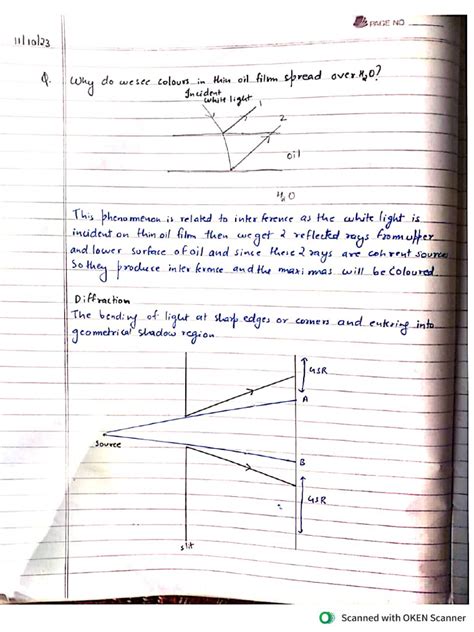 PAGE NO
11/10/23
Q. Why do we see colours in thin oil film spread over H2O?
Incident
white light
1
2
oil
H2O
This phenomenon is related to interference as the white light is
incident on thin oil film then we get 2 reflected rays from upper
and lower surface of oil and since these 2 rays are cohrent sources
So they produce interference and the maximas will be coloured.
Diffraction
The bending of light at sharp edges or corners and entering into
geometrical shadow region
GSR
A
Source
B
GSR
slit
Scanned with OKEN Scanner